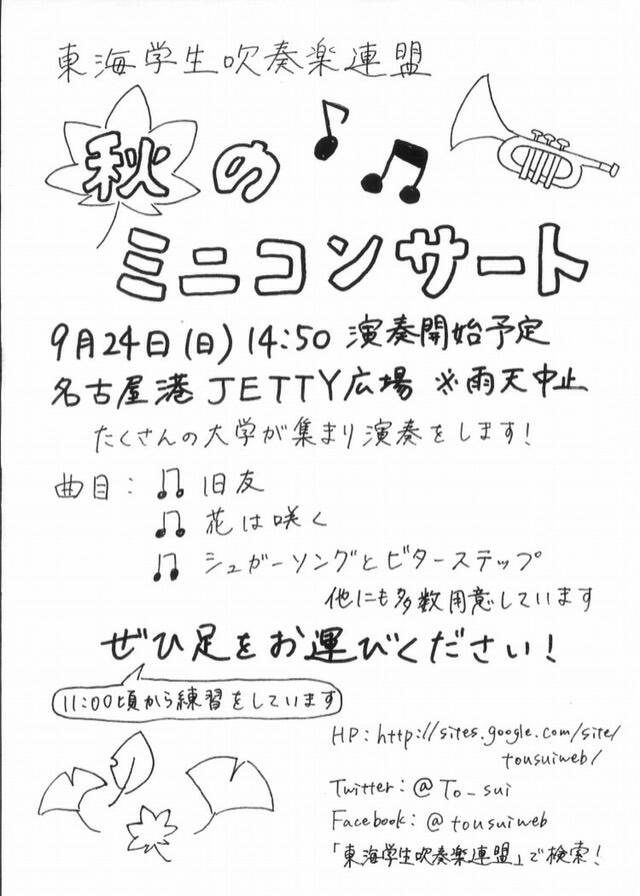 東海学生吹奏楽連盟
秋の
ミニコンサート
9月24日(日) 14:50 演奏開始予定
名古屋港 JETTY広場 ※雨天中止
たくさんの大学が集まり演奏をします!
曲目: 旧友
花は咲く
シュガーソングとビターステップ
他にも多数用意しています
ぜひ足をお運びください!
11:00頃から練習をしています
HP: http://sites.google.com/site/
tousuiweb/
Twitter: @To_sui
Facebook: @tousuiweb
「東海学生吹奏楽連盟」で検索!